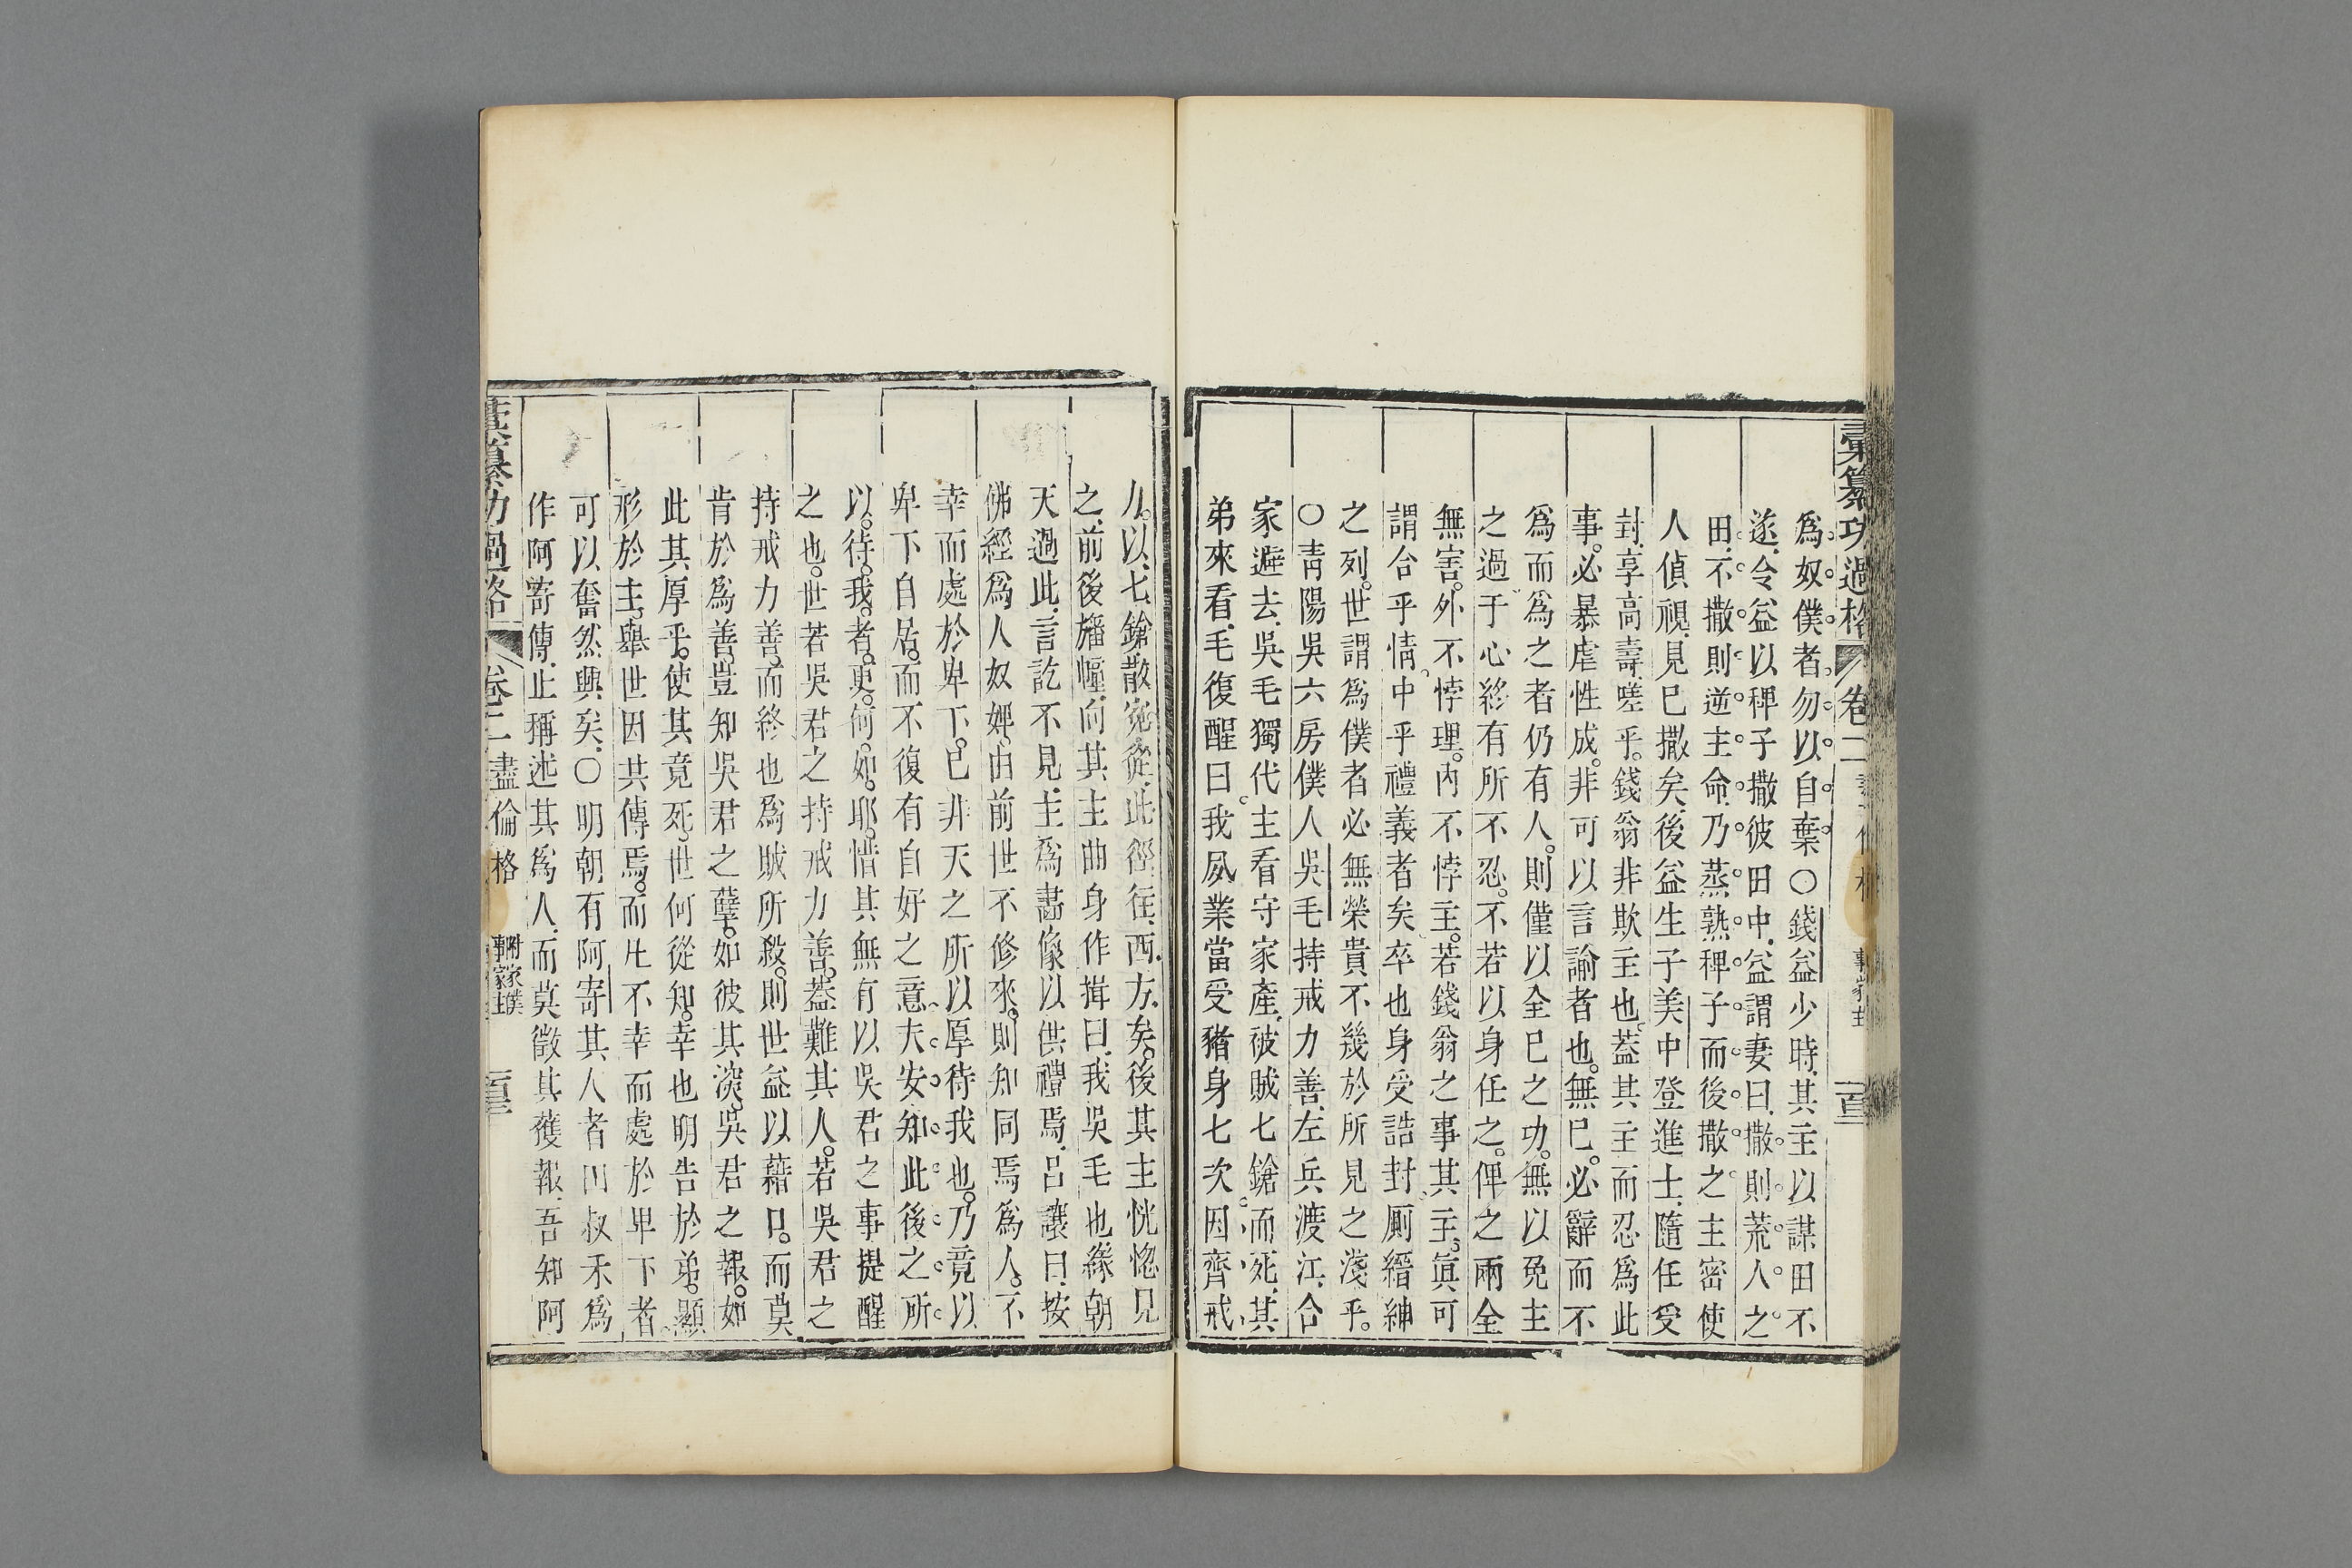 彙纂功過格 卷二 盡倫格 事家主 一百三
爲奴僕者勿以自棄○錢益少時其主以謀田不
遂令益以稗子撒彼田中益謂妻曰撒則荒人之
田不撒則逆主命乃蒸熟稗子而後撒之主密使
人偵視見已撒矣後益生子美中登進士隨任受
封享高壽嗟乎錢翁非欺主也蓋其主而忍爲此
事必暴虐性成非可以言諭者也無已必辭而不
爲而爲之者仍有人則僅以全已之功無以免主
之過于心終有所不忍不若以身任之俾之兩全
無害外不悖理內不悖主若錢翁之事其主眞可
謂合乎情中乎禮義者矣卒也身受誥封厠縉紳
之列世謂爲僕者必無榮貴不幾於所見之淺乎
○靑陽吳六房僕人吳毛持戒力善左兵渡江合
家避去吳毛獨代主看守家產被賊七鎗而死其
弟來看毛復醒曰我夙業當受豬身七次因齊戒
力以七鎗散寃從此徑往西方矣後其主恍惚見
之前後旛幢向其主曲身作揖曰我吳毛也緣朝
天過此言訖不見主爲畵像以供禮焉呂讓曰按
佛經爲人奴婢由前世不修來則知同焉爲人不
幸而處於卑下已非天之所以厚待我也乃竟以
卑下自居而不復有自好之意夫安知此後之所
以待我者更何如耶惜其無有以吳君之事提醒
之也世若吳君之持戒力善蓋難其人若吳君之
持戒力善而終也爲賊所殺則世益以藉口而莫
肯於爲善豈知吳君之孽如彼其深吳君之報如
此其厚乎使其竟死世何從知幸也明告於弟顯
形於主舉世因共傳焉而凡不幸而處於卑下者
可以奮然興矣○明朝有阿寄其人者田叔禾爲
作阿寄傳止稱述其爲人而莫徵其獲報吾知阿
彙纂功過格 卷二 盡倫格 事家主 附家僕 一百三